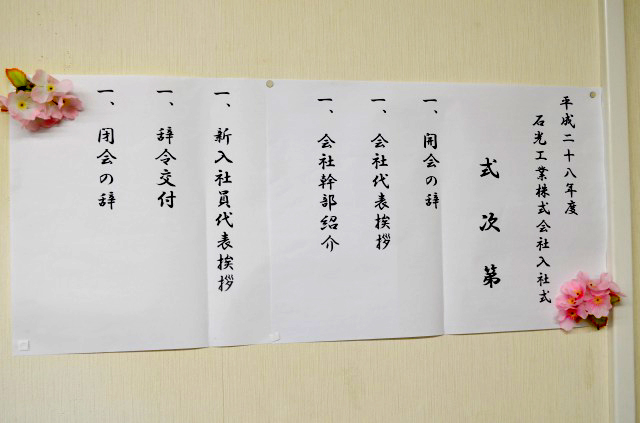 平成二十八年度
石光工業株式会社入社式
式次第
一、開会の辞
一、会社代表挨拶
一、会社幹部紹介
一、新入社員代表挨拶
一、辞令交付
一、閉会の辞